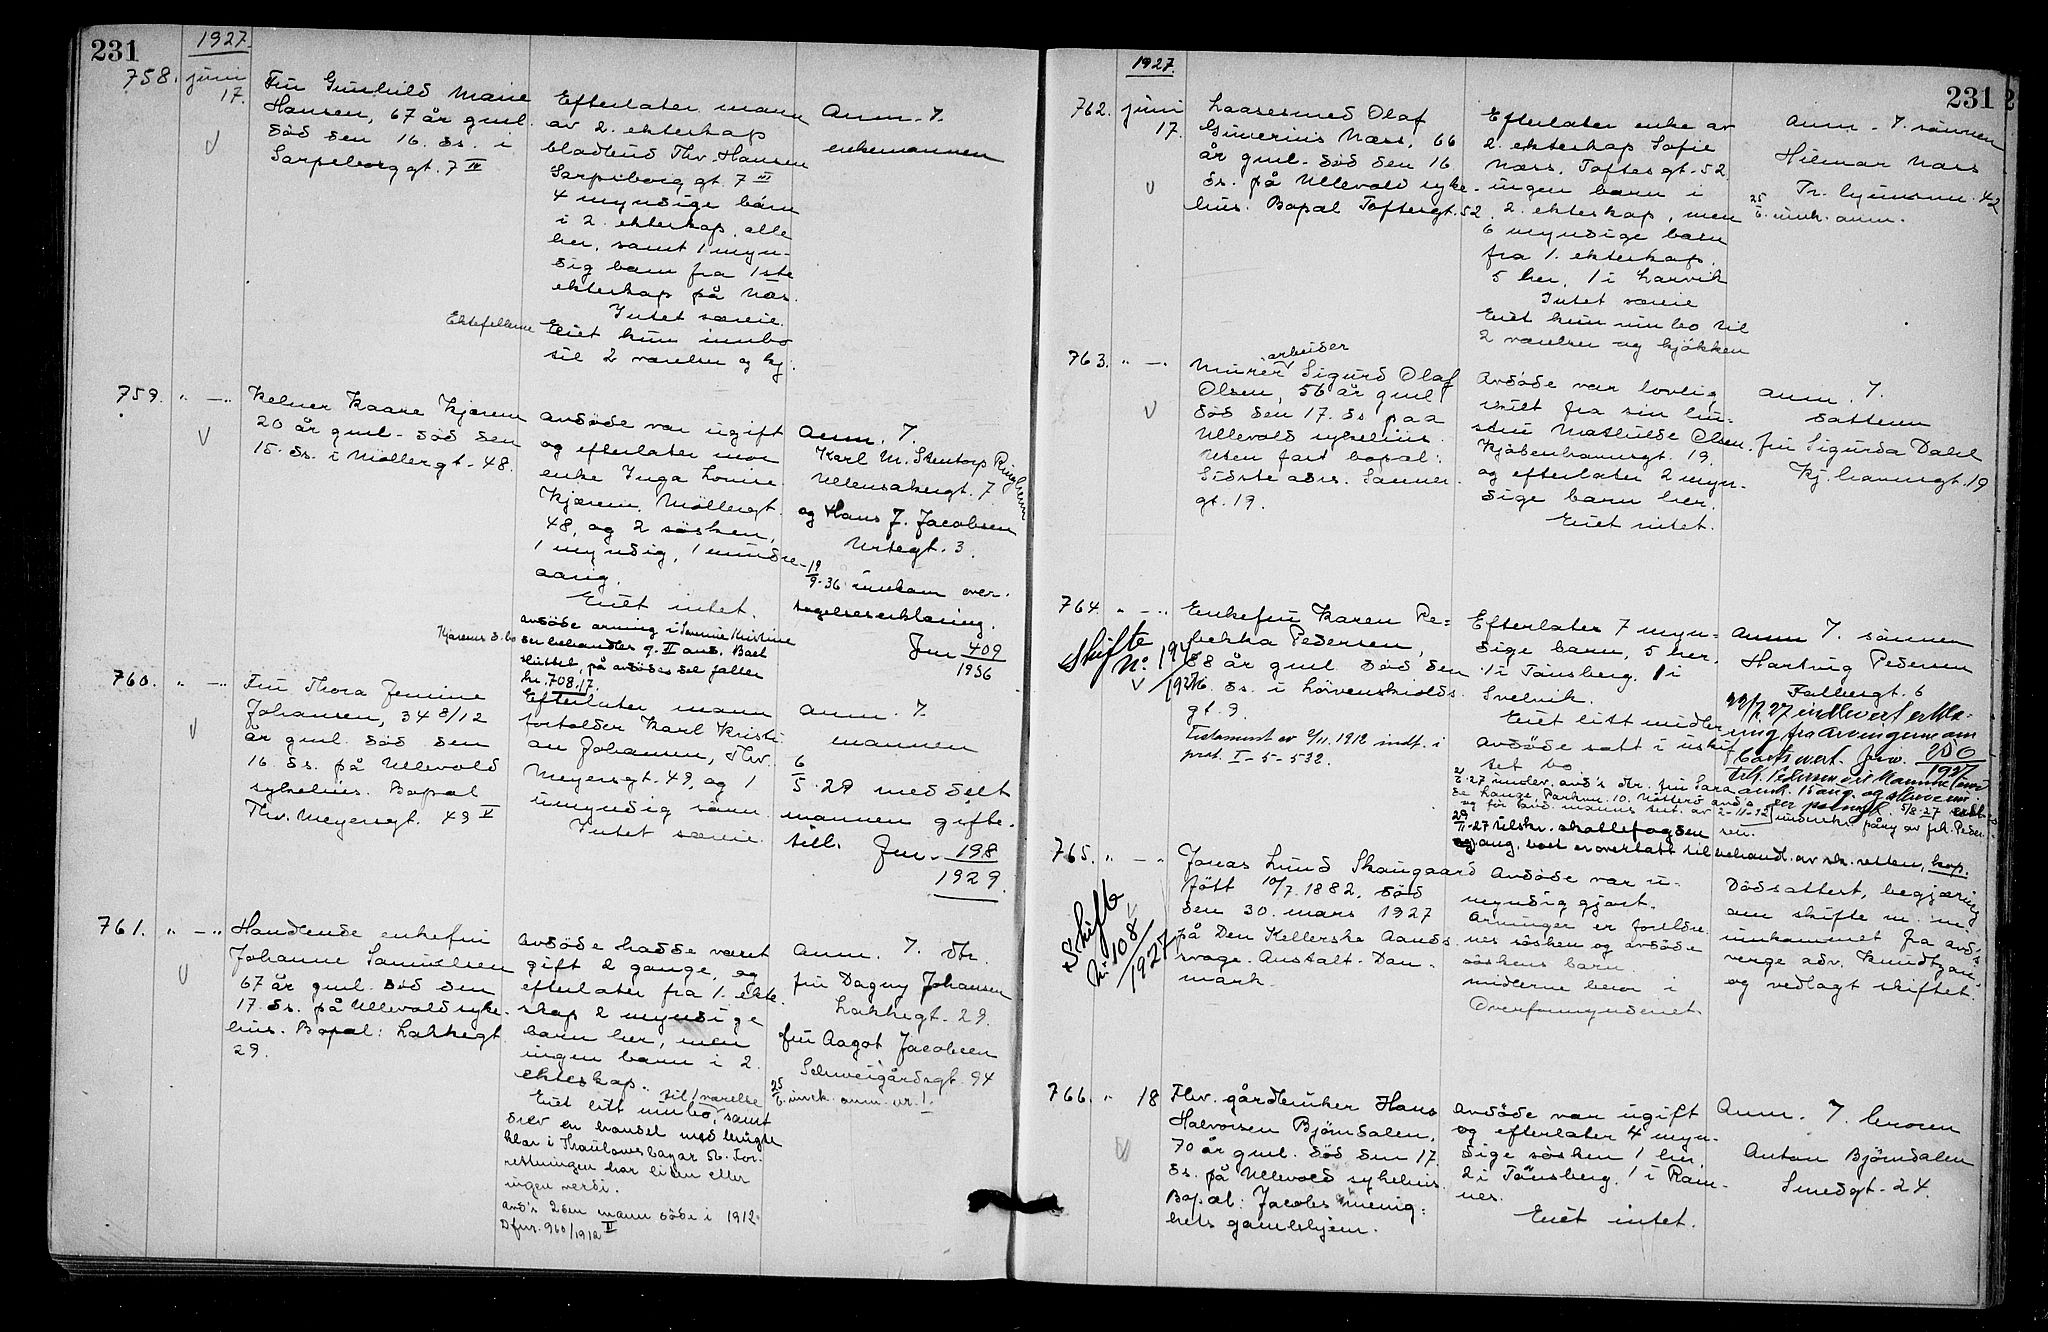 231
1927.
758. juni
17.
Fru Gunhild Marie
Hansen, 67 år gml.
död den 16. ds. i
Sarpsborggt. 7 IV
Efterlater mann
av 2. ekteskap
bladbud Thv. Hansen
Sarpsborggt. 7 III
4 myndige barn
i 2. ekteskap, alle
her, samt 1 myn-
dig barn fra 1ste
ekteskap på Næs.
Intet særeie.
Ektefellerne Eiet kun innbo
til 2 værelser og kj.
Anm. 7.
enkemannen
759. " — "
Kelner Kaare Kjærem
20 år gml. död den
15. ds. i Möllergt. 48.
Avdöde var ugift
og efterlater mor
enke Inga Lovise
Kjærem, Möllergt.
48, og 2 sösken,
1 myndig, 1 mindre-
aarig.
Eiet intet.
avdöde arving i Jennie Kristine
Kjærems d. bo der behandles q. II avd. Boet
sluttet, på avdödes del faller
kr. 708.17.
Anm. 7.
Karl M. Stentorp Ringheim
Ullensakergt. 7
og Hans J. Jacobsen
Urtegt. 3.
19/9-36 innkom over-
tagelseserklæring.
Jnr 409/1936
760. " — "
Fru Thora Jensine
Johansen, 34 8/12
år gml. död den
16. ds. på Ullevold
sykehus. Bopæl
Thv. Meyersgt. 49 V
Efterlater mann
fortolder Karl Kristi
an Johansen, Thv.
Meyersgt. 49, og 1
umyndig sönn.
Intet særeie.
Anm. 7.
mannen
6/5.29 meddelt
mannen gifte-
till. Jnr. 198/1929.
761. " — "
Handlende enkefru
Johanne Samuelsen
67 år gml. död den
17. ds. på Ullevold syke-
hus. Bopæl: Lakkegt.
29.
Avdöde hadde været
gift 2 gange, og
efterlater fra 1. ekte-
skap 2 myndige
barn her, men
ingen barn i 2.
ekteskap.
til 1 værelse
Eiet litt innbo, samt
drev en handel med brugte
klær i Thaulows bazar 56. For-
retningen har liten eller
ingen verdi.
avd's 2den mann döde i 1912.
Dfnr. 960/1912 II
Anm. 7. dtr.
fru Dagny Johansen
Lakkegt. 29.
fru Aagot Jacobsen
Schweigårdsgt. 94
25/6. innk. anm. nr. 1.
1927.
231
762. juni
17.
Laasesmed Olaf
Gunerius Næss, 66
år gml. död den 16
ds. på Ullevold syke-
hus. Bopæl Toftesgt. 52
Efterlater enke av
2. ekteskap Sofie
Næss, Toftesgt. 52.
ingen barn i
2. ekteskap, men
6 myndige barn
fra 1. ekteskap.
5 her, 1 i Larvik
Intet særeie
Eiet kun innbo til
2 værelser og kjökken
Anm. 7. sönnen
Hilmar Næss
42
25/6. innk. anm.
763. " — "
arbeider
Murer Sigurd Olaf
Olsen, 56 år gml
död den 17. ds paa
Ullevold sykehus.
Uten fast bopæl.
Sidste adrs. Sanner-
gt. 19.
Avdöde var lovlig
skilt fra sin hu-
stru Mathilde Olsen,
Kjöbenhavnsgt. 19.
og efterlater 2 myn-
dige barn her.
Eiet intet.
Anm. 7.
datteren
fru Sigurda Dahl
Kj.havnsgt. 19
764. " — "
Skifte
No 194/1927
Enkefru Karen Re-
bekka Pedersen,
88 år gml död den
16. ds. i Lövenskiolds
gt. 9.
Testament av 2/11. 1912 indf. i
prot. I-5-532.
Efterlater 7 myn-
dige barn, 5 her,
1 i Tönsberg, 1 i
Svelvik.
Eiet litt midler
Avdöde satt i uskif-
tet bo
Anm 7. sönnen
Hartvig Pedersen
Falbergt. 6
22/7.27 innlevert erklæ-
ring fra arvingene om
29/11-27 utskr. skattefogden
ang. boet er overtatt til behandl. av sk. retten, kap.
765. " — "
Skifte
Nr. 108/1927
Jonas Lund Skaugaard
født 10/7. 1882, död
den 30. mars 1927
på Den Kellerske Aands-
svage. Anstalt. Dan-
mark.
Avdöde var u-
myndiggjort.
Arvinger er foreldre-
nes sösken og avdöde
söskens barn
midlerne beror i
Overformynderiet.
Dödsattest, begjæring
om skifte m. m.
innkommet fra avd's
verge adv. Knudtzon
og vedlagt skiftet.
766. " 18
Fhv. gårdbruker Hans
Halvorsen Björndalen,
70 år gml. död den 17.
ds. på Ullevold sykehus.
Bopæl: Jacobs menig-
hets gamlehjem.
Avdöde var ugift
og efterlater 4 myn-
dige sösken 1 her,
2 i Tönsberg, 1 i Ram-
nes.
Eiet intet.
Anm. 7. broren
Anton Björndalen
Smedgt. 24.